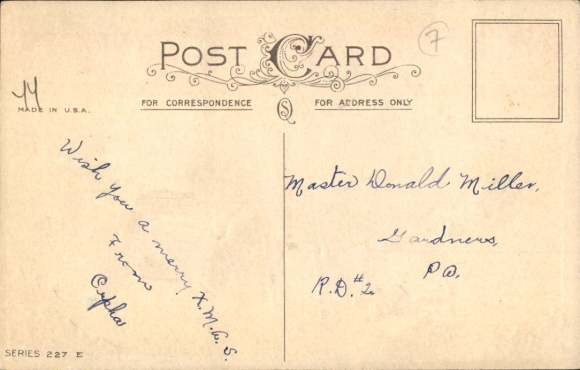 POST CARD
7
44
MADE IN U.S.A.
FOR CORRESPONDENCE
FOR ADDRESS ONLY
Wish you a merry X.M.A.S.
From
Orpha
Master Donald Miller,
Gardners,
Pa,
R.D. #2
SERIES 227 E